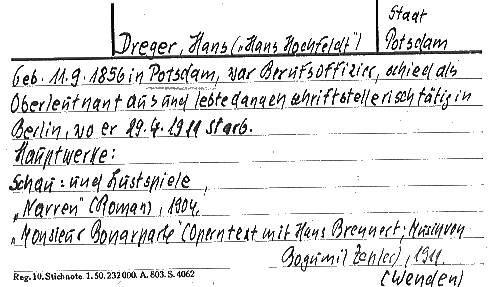 Stadt
Dreger, Hans („Hans Hochfeldt") Potsdam
Geb. 11.9.1856 in Potsdam, war Berufsoffizier, schied als
Oberleutnant aus und lebte danach schriftstellerisch tätig in
Berlin, wo er 29.4.1911 starb.
Hauptwerke:
Schau- und Lustspiele,
„Narren" (Roman), 1904,
„Monsieur Bonaparte" (Operntext mit Hans Brennert; Musik von
Bogumil Zepler), 1911.
(Wenden)
Reg. 10. Stichnote 1. 50. 232 000. A. 803. S. 4062